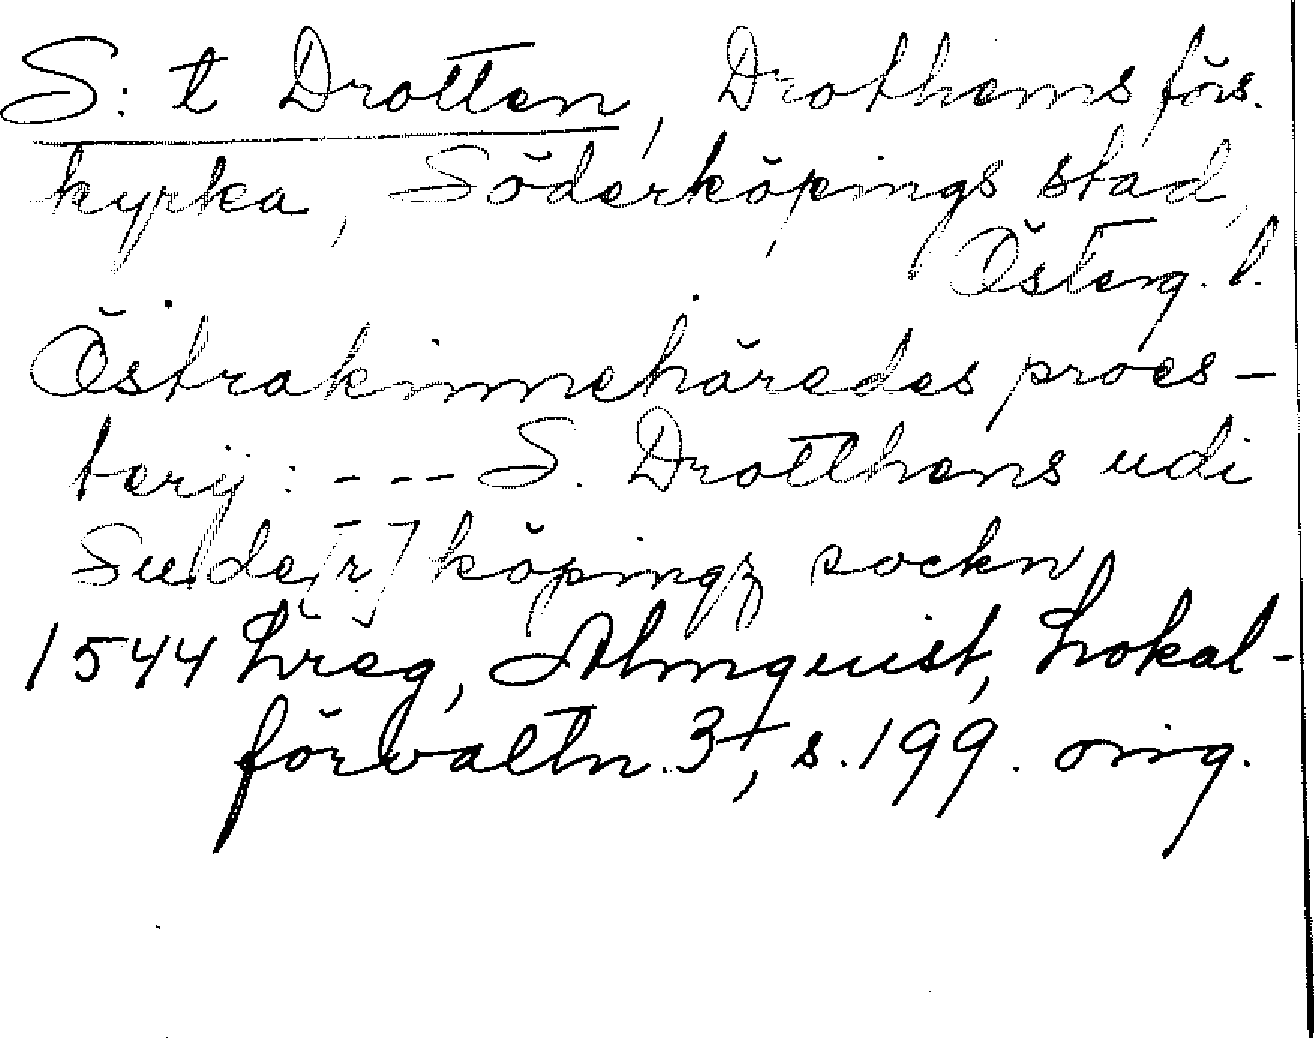 S:t Drotten, Drothems förs.
kyrka, Söderköpings stad,
Österg. l.
Östrakinnehäredes proes-
terij: --- S. Drotthens udi
Sude[r]köpingz sockn
1544 Lreg, Almquist, Lokal-
förvaltn. 3, s. 199. orig.